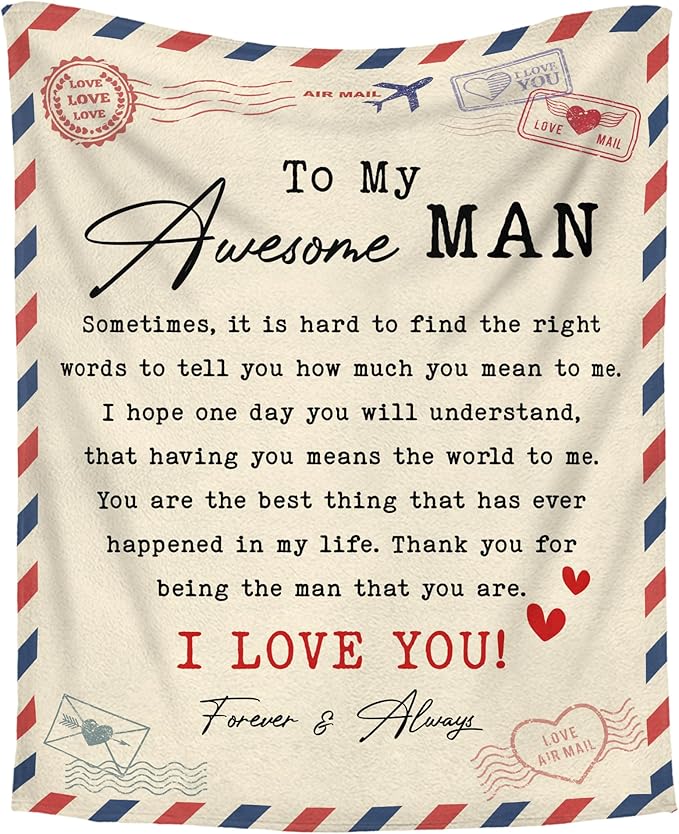 LOVE
LOVE
LOVE
AIR MAIL
I LOVE
YOU
LOVE MAIL
To My
Awesome MAN
Sometimes, it is hard to find the right
words to tell you how much you mean to me.
I hope one day you will understand,
that having you means the world to me.
You are the best thing that has ever
happened in my life. Thank you for
being the man that you are.
I LOVE YOU!
Forever & Always
LOVE
AIR MAIL